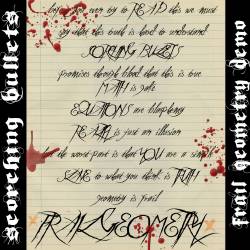 scorching bullets
before you even try to READ this we must
say
this truth is hard to understand
SCORCHING BULLETS
promises through blood that this is true
MATH is safe
EQUATIONS are blasphemy
REALITY is just an illusion
but the worst part is that YOU are a
SLAVE to what you think is TRUTH
geometry is frail
FRAIL GEOMETRY
frail geometry demo